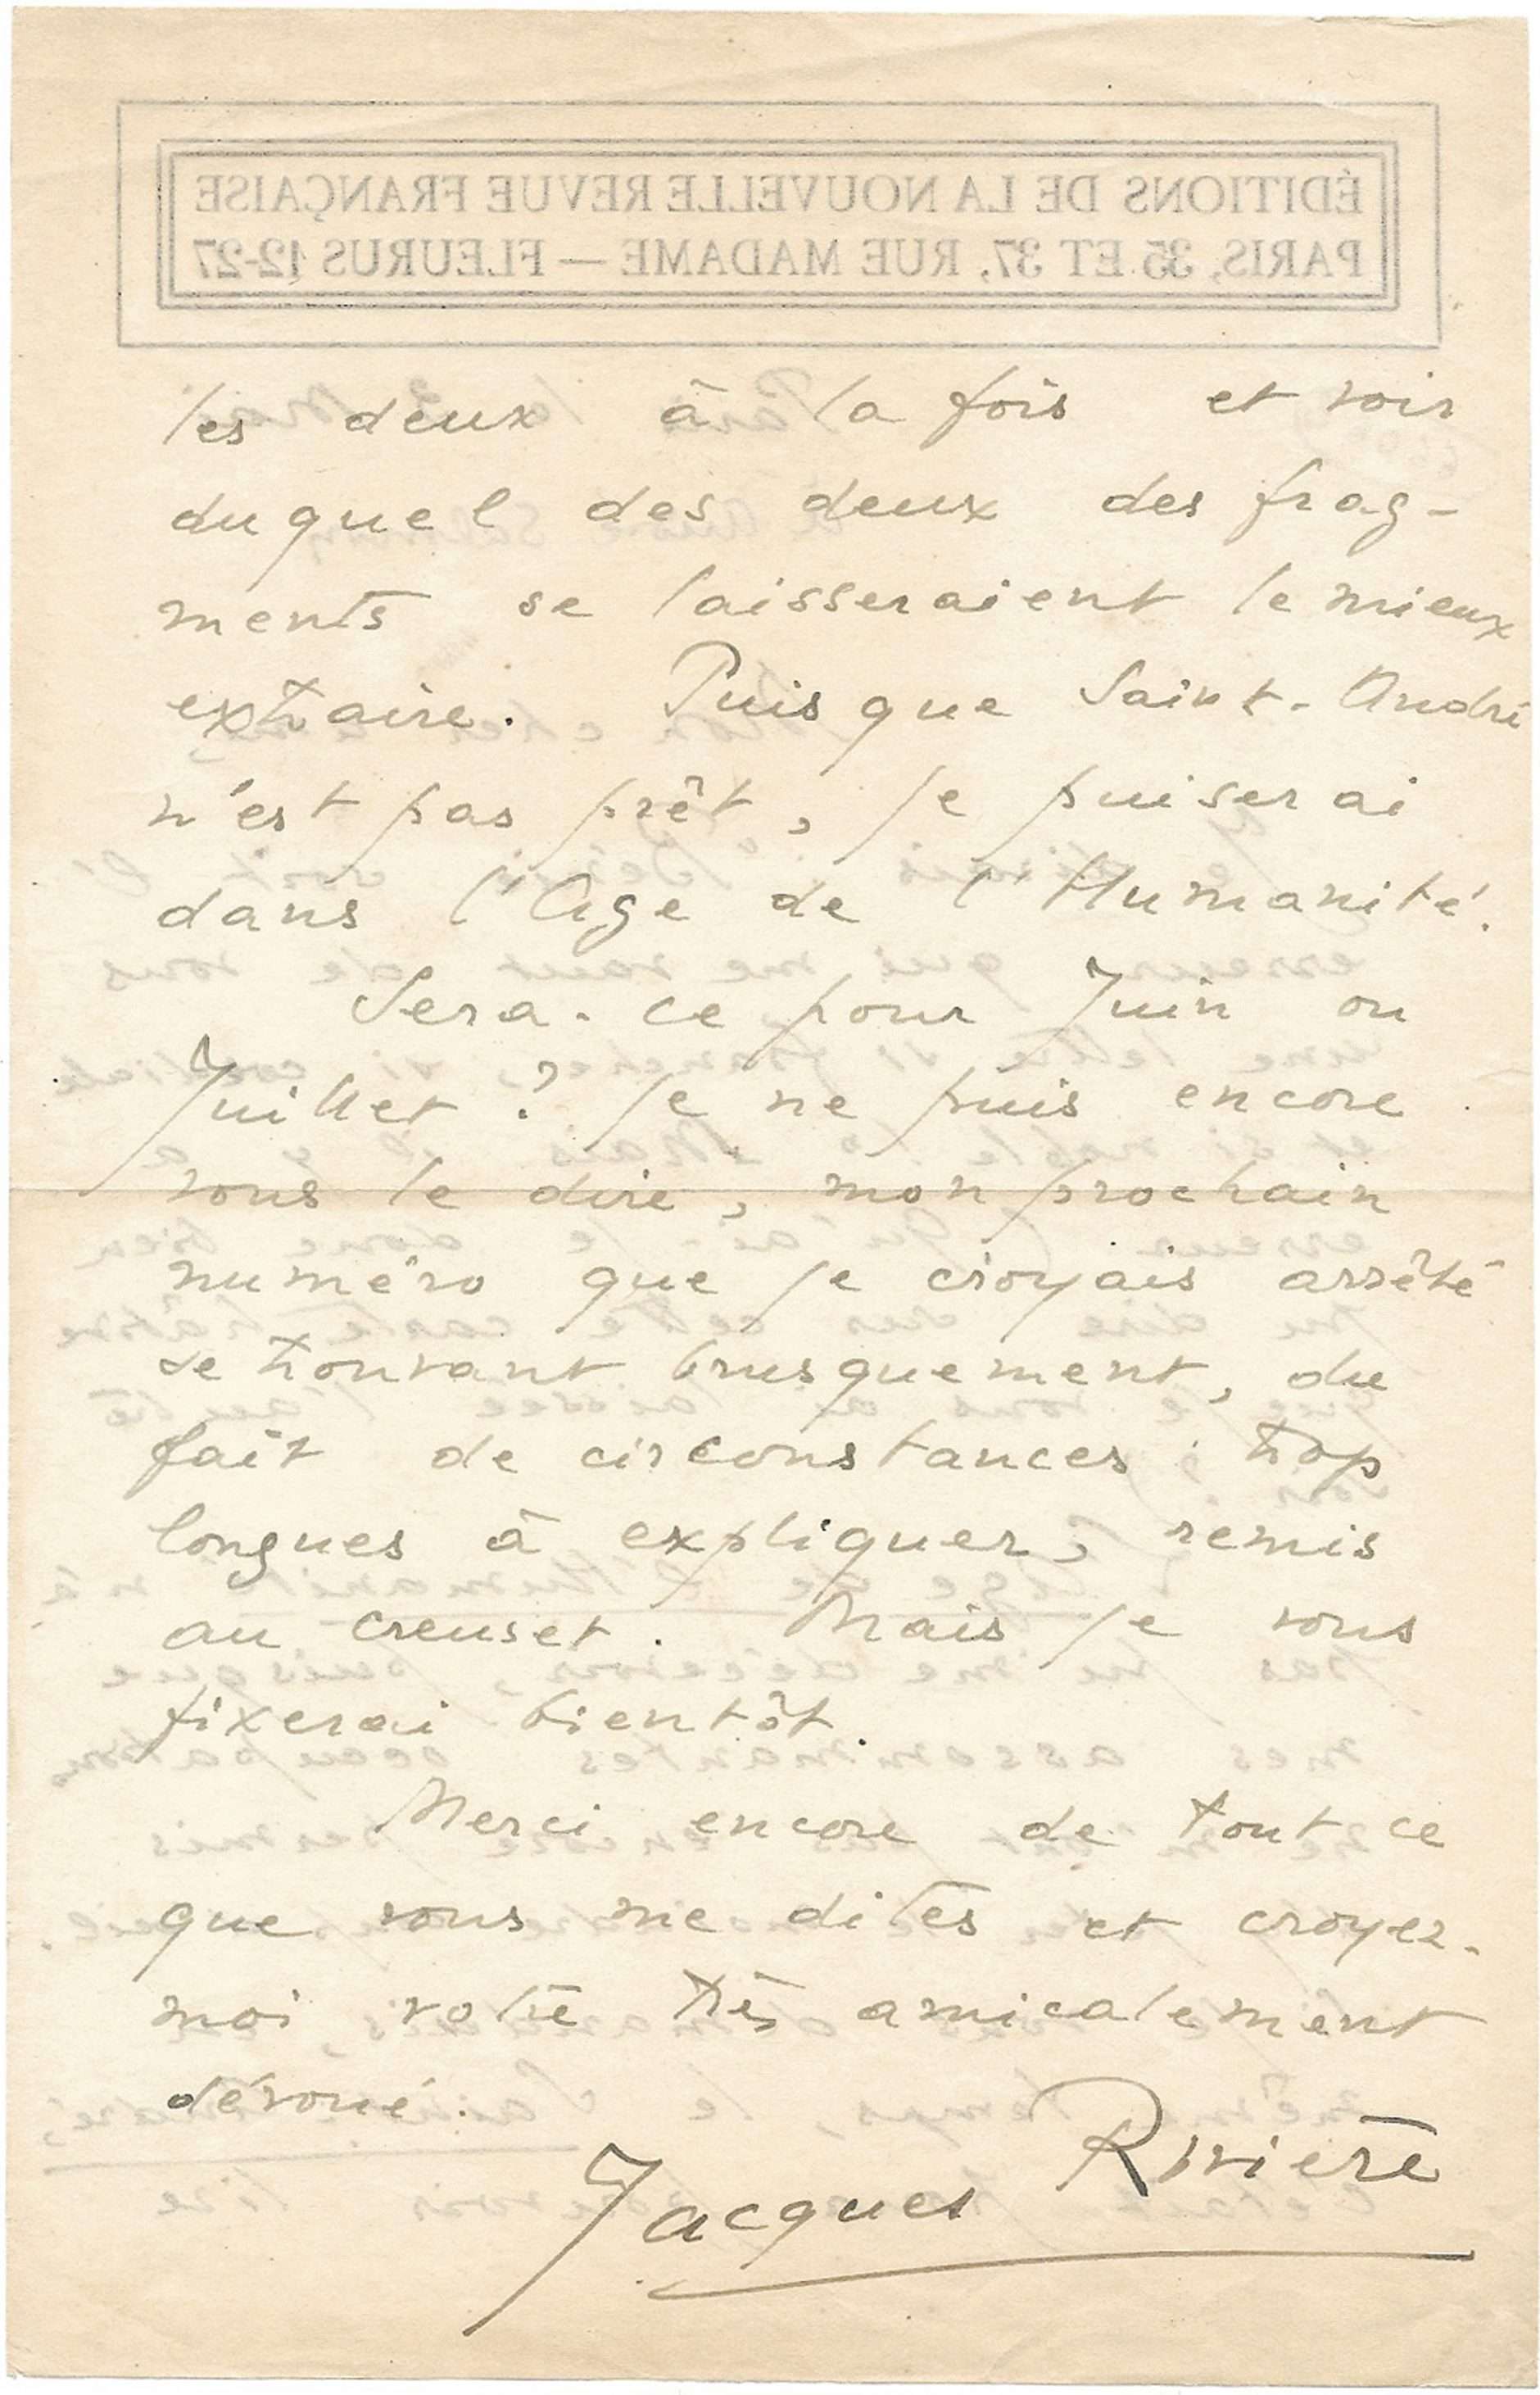 ÉDITIONS DE LA NOUVELLE REVUE FRANÇAISE
PARIS, 35 ET 37, RUE MADAME — FLEURUS 12-27
les deux à la fois et voir
duquel des deux des frag-
ments se laisseraient le mieux
extraire. Puisque Saint-André
n'est pas prêt, je puiserai
dans l'Age de l'Humanité.
Sera-ce pour Juin ou
Juillet ? Je ne puis encore
vous le dire, mon prochain
numéro que je croyais arrêté
se trouvant brusquement, du
fait de circonstances trop
longues à expliquer, remis
au creuset. Mais je vous
fixerai bientôt.
Merci encore de tout ce
que vous me dites et croyez-
moi votre très amicalement
dévoué.
Jacques Rivière